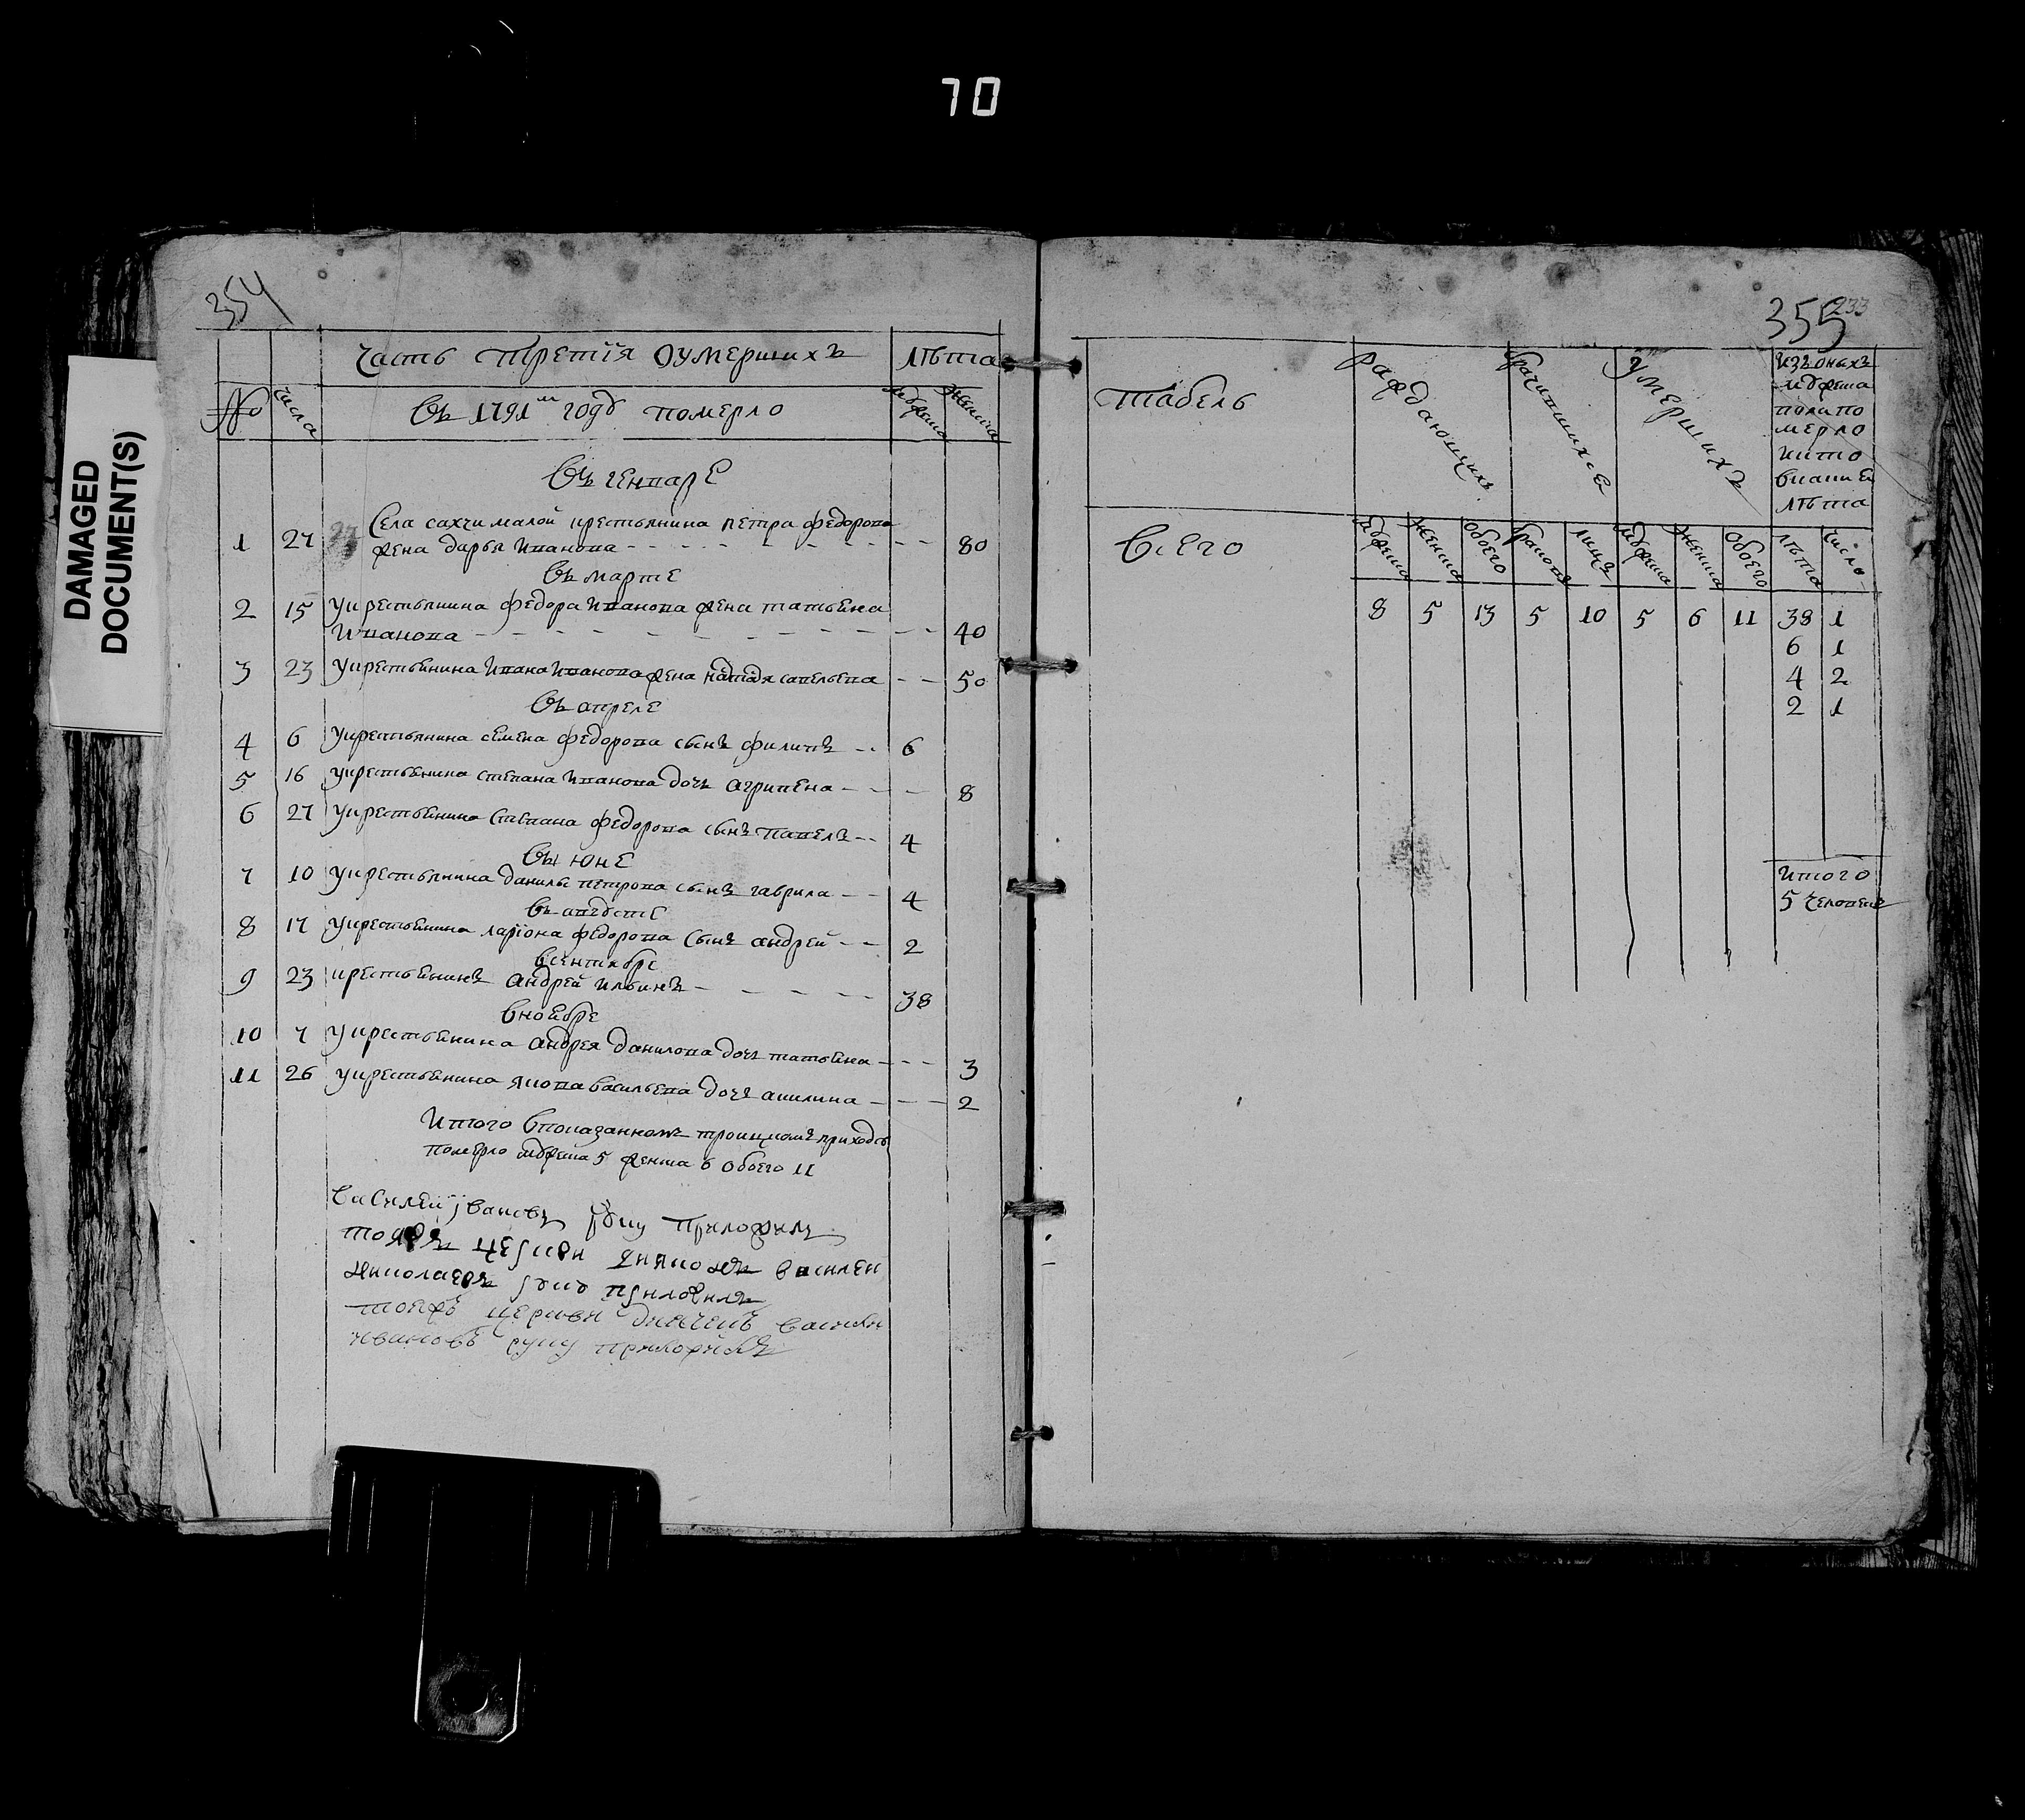 70
DAMAGED
DOCUMENT(S)
354
Часть третїя оумершихъ
лѣта
№
числа
Въ 1791м году померло
мужеска
женска
Въ генваре
1 27 Села сахчи малой крестьянина петра федорова
жена дарья иванова 80
Въ марте
2 15 У крестьянина федора иванова жена татьяна
иванова 40
3 23 У крестьянина ивана иванова жена савельева 50
Въ апреле
4 6 У крестьянина семена федорова сынъ филипъ 6
5 16 У крестьянина степана иванова дочь агрипена 8
6 27 У крестьянина степана федорова сынъ павелъ 4
Въ июне
7 10 У крестьянина данилы петрова сынъ гаврила 4
Въ августе
8 17 У крестьянина ларїона федорова сынъ андрей 2
В сентябре
9 23 крестьянинъ андрей ильинъ 38
В ноябре
10 7 У крестьянина андрея данилова дочь татьяна 3
11 26 У крестьянина якова васильева дочь акилина 2
Итого в показанномъ троицкомъ приходѣ
померло мужеска 5 женска 6 обоего 11
василей ївановъ руку приложилъ
тояжъ церкви василей
николаевъ руку приложилъ
тоежъ церкви дьячекъ василий
ивановъ руку приложилъ
355
233
табель
Раждающихъ
Брачившихся
Умершихъ
изъ оныхъ
мужеска
полу по
мерло
и кто
в какие
лѣта
Всего
мужеска
женска
обоего
браковъ
лицъ
мужеска
женска
обоего
лѣта
число
8 5 13 5 10 5 6 11 38 1
6 1
4 2
2 1
итого
5 человекъ